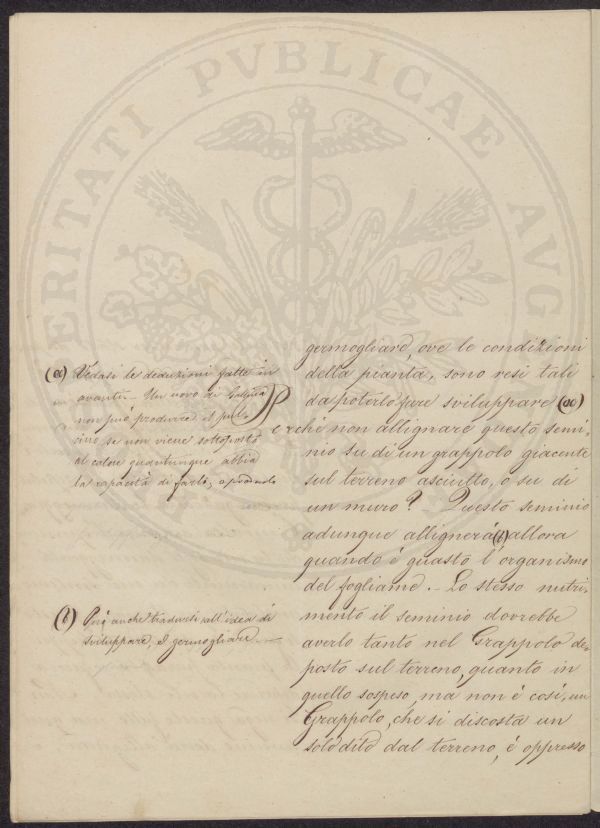 VERITATI PVBLICAE AVG
germogliare, ove le condizioni
della pianta, sono resi tali
da poterlo fare sviluppare (a)
Perchè non allignare questo semi-
nio su di un grappolo giacente
sul terreno asciutto, o su di
un muro? Questo seminio
adunque allignerà (b) allora
quando é guasto l'organismo
del fogliame. – Lo stesso nutri-
mento il seminio dovrebbe
averlo tanto nel Grappolo de-
posto sul terreno, quanto in
quello sospeso, ma non é così, un
Grappolo, che si discosta un
solo dito dal terreno, é oppresso
(a) Vedasi le deduzioni fatte in
avanti – Un uovo di Gallina
non può produrre il pul-
cino, se non viene sottoposto
al calore quantunque abbia
la capacità di farlo, o produrlo
(b) Può anche tradursi all'idea di
sviluppare, e germogliare –